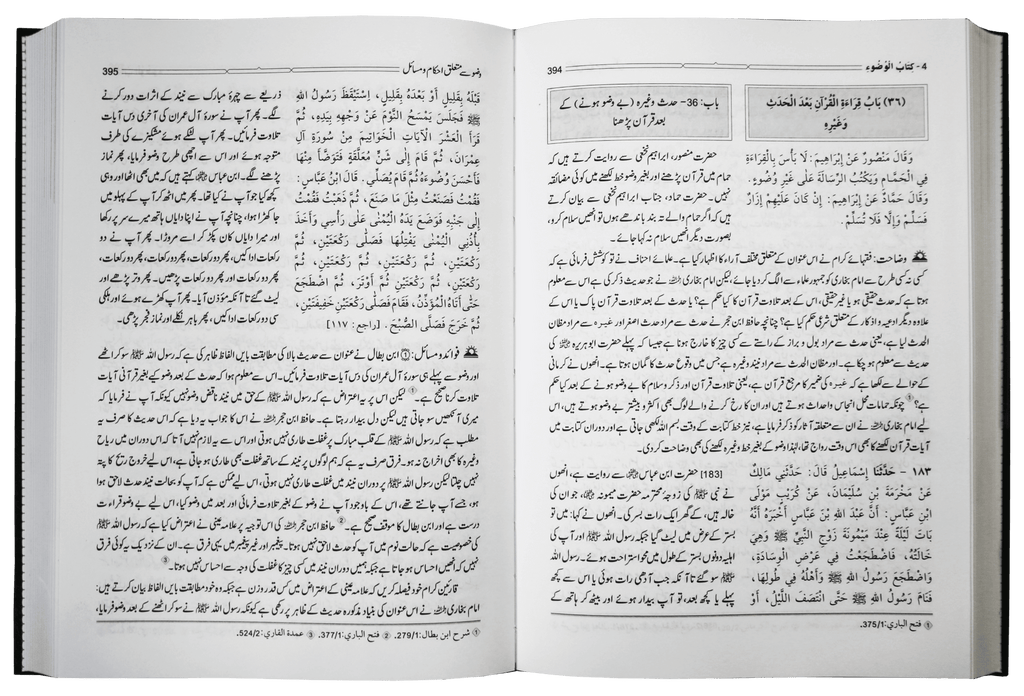 4- كِتَابُ الْوُضُوءِ
394
(٣٦) بَابُ قِرَاءَةِ الْقُرْآنِ بَعْدَ الْحَدَثِ
وَغَيْرِهِ
باب: 36- حدث وغیرہ (بے وضو ہونے) کے
بعد قرآن پڑھنا
وَقَالَ مَنْصُورٌ عَنْ إِبْرَاهِيمَ: لَا بَأْسَ بِالْقِرَاءَةِ
فِي الْحَمَّامِ وَيَكْتُبُ الرِّسَالَةَ عَلَى غَيْرِ وُضُوءٍ.
وَقَالَ حَمَّادٌ عَنْ إِبْرَاهِيمَ: إِنْ كَانَ عَلَيْهِمْ إِزَارٌ
فَسَلِّمْ وَإِلَّا فَلَا تُسَلِّمْ.
حضرت منصور، ابراہیم نخعی سے روایت کرتے ہیں کہ
حمام میں قرآن پڑھنے اور بغیر وضو خط لکھنے میں کوئی مضائقہ
نہیں۔ حضرت حماد، جناب ابراہیم نخعی سے بیان کرتے
ہیں کہ اگر حمام والے تہ بند باندھے ہوں تو انھیں سلام کرو،
بصورت دیگر انھیں سلام نہ کہا جائے۔
وضاحت: فقہائے کرام نے اس عنوان کے متعلق مختلف آراء کا اظہار کیا ہے۔ علمائے احناف نے تو کوشش فرمائی ہے کہ
کسی نہ کسی طرح سے امام بخاری کو جمہور علماء سے الگ کر دیا جائے، لیکن امام بخاری نے جو حدیث ذکر کی ہے اس سے معلوم
ہوتا ہے کہ حدث حقیقی ہو یا غیر حقیقی، اس کے بعد تلاوت قرآن کا کیا حکم ہے؟ یا حدث کے بعد تلاوت قرآن پاک یا اس کے
علاوہ دیگر ادعیہ و اذکار کے متعلق شرعی حکم کیا ہے؟ چنانچہ حافظ ابن حجر نے حدث سے مراد حدث اصغر اور غیرہ سے مراد مظان
الحدث لیا ہے، یعنی حدث سے مراد بول و براز کے راستے سے کسی چیز کا خارج ہونا ہے جیسا کہ پہلے حضرت ابو ہریرہ کی
حدیث سے معلوم ہو چکا ہے۔ اور مظان الحدث سے مراد نیند وغیرہ ہے، جس میں وقوع حدث کا گمان ہوتا ہے۔ انھوں نے کرمانی
کے حوالے سے لکھا ہے کہ غیرہ کی ضمیر کا مرجع قرآن ہے، یعنی تلاوت قرآن اور ذکر و سلام کا بے وضو ہونے کے بعد کیا حکم
ہے؟ ① چونکہ حمامات محل انجاس و احداث ہوتے ہیں اور ان کا رخ کرنے والے لوگ بھی اکثر و بیشتر بے وضو ہوتے ہیں، اس
لیے امام بخاری نے ان سے متعلقہ آثار کو ذکر فرمایا ہے، نیز خط کتابت کے وقت بسم اللہ لکھی جاتی ہے اور دوران کتابت میں
آیات قرآن لکھنے کا بھی اس وقت رواج تھا، لہٰذا وضو کے بغیر خط وغیرہ لکھنے کی بھی وضاحت کر دی۔
١٨٣ - حَدَّثَنَا إِسْمَاعِيلُ قَالَ: حَدَّثَنِي مَالِكٌ
عَنْ مَخْرَمَةَ بْنِ سُلَيْمَانَ، عَنْ كُرَيْبٍ مَوْلَى
ابْنِ عَبَّاسٍ: أَنَّ عَبْدَ اللهِ بْنَ عَبَّاسٍ أَخْبَرَهُ أَنَّهُ
بَاتَ لَيْلَةً عِنْدَ مَيْمُونَةَ زَوْجِ النَّبِيِّ ﷺ وَهِيَ
خَالَتُهُ، فَاضْطَجَعْتُ فِي عَرْضِ الْوِسَادَةِ،
وَاضْطَجَعَ رَسُولُ اللهِ ﷺ وَأَهْلُهُ فِي طُولِهَا،
فَنَامَ رَسُولُ اللهِ ﷺ حَتَّى انْتَصَفَ اللَّيْلُ، أَوْ
[183] حضرت ابن عباس سے روایت ہے، انھوں
نے نبی ﷺ کی زوجۂ محترمہ حضرت میمونہ، جو ان کی
خالہ ہیں، کے گھر ایک رات بسر کی۔ انھوں نے کہا: میں تو
بستر کے عرض میں لیٹ گیا جبکہ رسول اللہ ﷺ اور آپ کی
اہلیہ دونوں بستر کے طول میں محو استراحت ہوئے۔ رسول اللہ
ﷺ سو گئے تا آنکہ جب آدھی رات ہوئی یا اس سے کچھ
پہلے یا کچھ بعد، تو آپ بیدار ہوئے اور بیٹھ کر ہاتھ کے
① فتح الباري: 375/1.
وضو سے متعلق احکام و مسائل
395
قَبْلَهُ بِقَلِيلٍ أَوْ بَعْدَهُ بِقَلِيلٍ، اِسْتَيْقَظَ رَسُولُ اللهِ
ﷺ فَجَلَسَ يَمْسَحُ النَّوْمَ عَنْ وَجْهِهِ بِيَدِهِ، ثُمَّ
قَرَأَ الْعَشْرَ الْآيَاتِ الْخَوَاتِيمَ مِنْ سُورَةِ آلِ
عِمْرَانَ، ثُمَّ قَامَ إِلَى شَنٍّ مُعَلَّقَةٍ فَتَوَضَّأَ مِنْهَا
فَأَحْسَنَ وُضُوءَهُ ثُمَّ قَامَ يُصَلِّي. قَالَ ابْنُ عَبَّاسٍ:
فَقُمْتُ فَصَنَعْتُ مِثْلَ مَا صَنَعَ، ثُمَّ ذَهَبْتُ فَقُمْتُ
إِلَى جَنْبِهِ فَوَضَعَ يَدَهُ الْيُمْنَى عَلَى رَأْسِي وَأَخَذَ
بِأُذُنِي الْيُمْنَى يَفْتِلُهَا فَصَلَّى رَكْعَتَيْنِ، ثُمَّ
رَكْعَتَيْنِ، ثُمَّ رَكْعَتَيْنِ، ثُمَّ رَكْعَتَيْنِ، ثُمَّ
رَكْعَتَيْنِ، ثُمَّ رَكْعَتَيْنِ ثُمَّ أَوْتَرَ، ثُمَّ اضْطَجَعَ
حَتَّى أَتَاهُ الْمُؤَذِّنُ، فَقَامَ فَصَلَّى رَكْعَتَيْنِ خَفِيفَتَيْنِ،
ثُمَّ خَرَجَ فَصَلَّى الصُّبْحَ. [راجع: ١١٧]
ذریعے سے چہرۂ مبارک سے نیند کے اثرات دور کرنے
لگے۔ پھر آپ نے سورۂ آل عمران کی آخری دس آیات
تلاوت فرمائیں۔ پھر آپ لٹکے ہوئے مشکیزے کی طرف
متوجہ ہوئے اور اس سے اچھی طرح وضو فرمایا، پھر نماز
پڑھنے لگے۔ ابن عباس کہتے ہیں کہ میں بھی اٹھا اور وہی
کچھ کیا جو آپ نے کیا تھا۔ پھر میں اٹھ کر آپ کے پہلو میں
جا کھڑا ہوا، چنانچہ آپ نے اپنا دایاں ہاتھ میرے سر پر رکھا
اور میرا دایاں کان پکڑ کر اسے مروڑا۔ پھر آپ نے دو
رکعات ادا کیں، پھر دو رکعات، پھر دو رکعات، پھر دو رکعات،
پھر دو رکعات اور پھر دو رکعات پڑھیں۔ پھر وتر پڑھے اور
لیٹ گئے تا آنکہ مؤذن آیا۔ پھر آپ کھڑے ہوئے اور ہلکی
سی دو رکعات ادا کیں، پھر باہر نکلے اور نماز فجر پڑھی۔
فوائد و مسائل: ① ابن بطال نے عنوان سے حدیث بالا کی مطابقت بایں الفاظ ظاہر کی ہے کہ رسول اللہ ﷺ سو کر اٹھے
اور وضو سے پہلے ہی سورۂ آل عمران کی دس آیات تلاوت فرمائیں۔ اس سے معلوم ہوا کہ حدث کے بعد وضو کیے بغیر قرآنی آیات
تلاوت کرنا صحیح ہے۔ ① لیکن اس پر یہ اعتراض ہے کہ رسول اللہ ﷺ کے حق میں نیند ناقض وضو نہیں کیونکہ آپ نے فرمایا کہ
میری آنکھیں سو جاتی ہیں لیکن دل بیدار رہتا ہے۔ حافظ ابن حجر نے اس کا جواب یہ دیا ہے کہ اس حدیث کا صرف یہ
مطلب ہے کہ رسول اللہ ﷺ کے قلب مبارک پر غفلت طاری نہیں ہوتی اور اس سے یہ لازم نہیں آتا کہ اس دوران میں ریاح
وغیرہ کا بھی اخراج نہ ہو۔ فرق صرف یہ ہے کہ ہم لوگوں پر نیند کے ساتھ غفلت بھی طاری ہو جاتی ہے، اس لیے خروج ریح کا پتہ
نہیں چلتا لیکن رسول اللہ ﷺ پر دوران نیند میں غفلت طاری نہیں ہوتی، اس لیے ممکن ہے کہ آپ کو بحالت نیند حدث لاحق ہوا
ہو، جسے آپ جانتے تھے، اس کے باوجود آپ نے وضو کے بغیر تلاوت فرمائی اور بعد میں وضو کیا، اس لیے بے وضو قراءت
درست ہے اور ابن بطال کا موقف صحیح ہے۔ ② حافظ ابن حجر کی اس توجیہ پر علامہ عینی نے اعتراض کیا ہے کہ رسول اللہ ﷺ
کی خصوصیت ہے کہ حالت نوم میں آپ کو حدث لاحق نہیں ہوتا۔ پیغمبر اور غیر پیغمبر میں یہی فرق ہے۔ ان کے نزدیک یہ کوئی فرق
نہیں کہ انھیں احساس ہو جاتا ہے جبکہ ہمیں دوران نیند میں کسی چیز کا غفلت کی وجہ سے احساس نہیں ہوتا۔ ③
قارئین کرام خود فیصلہ کریں کہ علامہ عینی کے اعتراض میں کس قدر وزن ہے جبکہ وہ خود مطابقت بایں الفاظ بیان کرتے ہیں:
امام بخاری نے اس عنوان کی بنیاد مذکورہ حدیث کے ظاہر پر رکھی ہے کیونکہ رسول اللہ ﷺ نے سو کر اٹھنے کے بعد وضو فرمایا،
① شرح ابن بطال: 279/1. ② فتح الباري: 377/1. ③ عمدة القاري: 524/2.